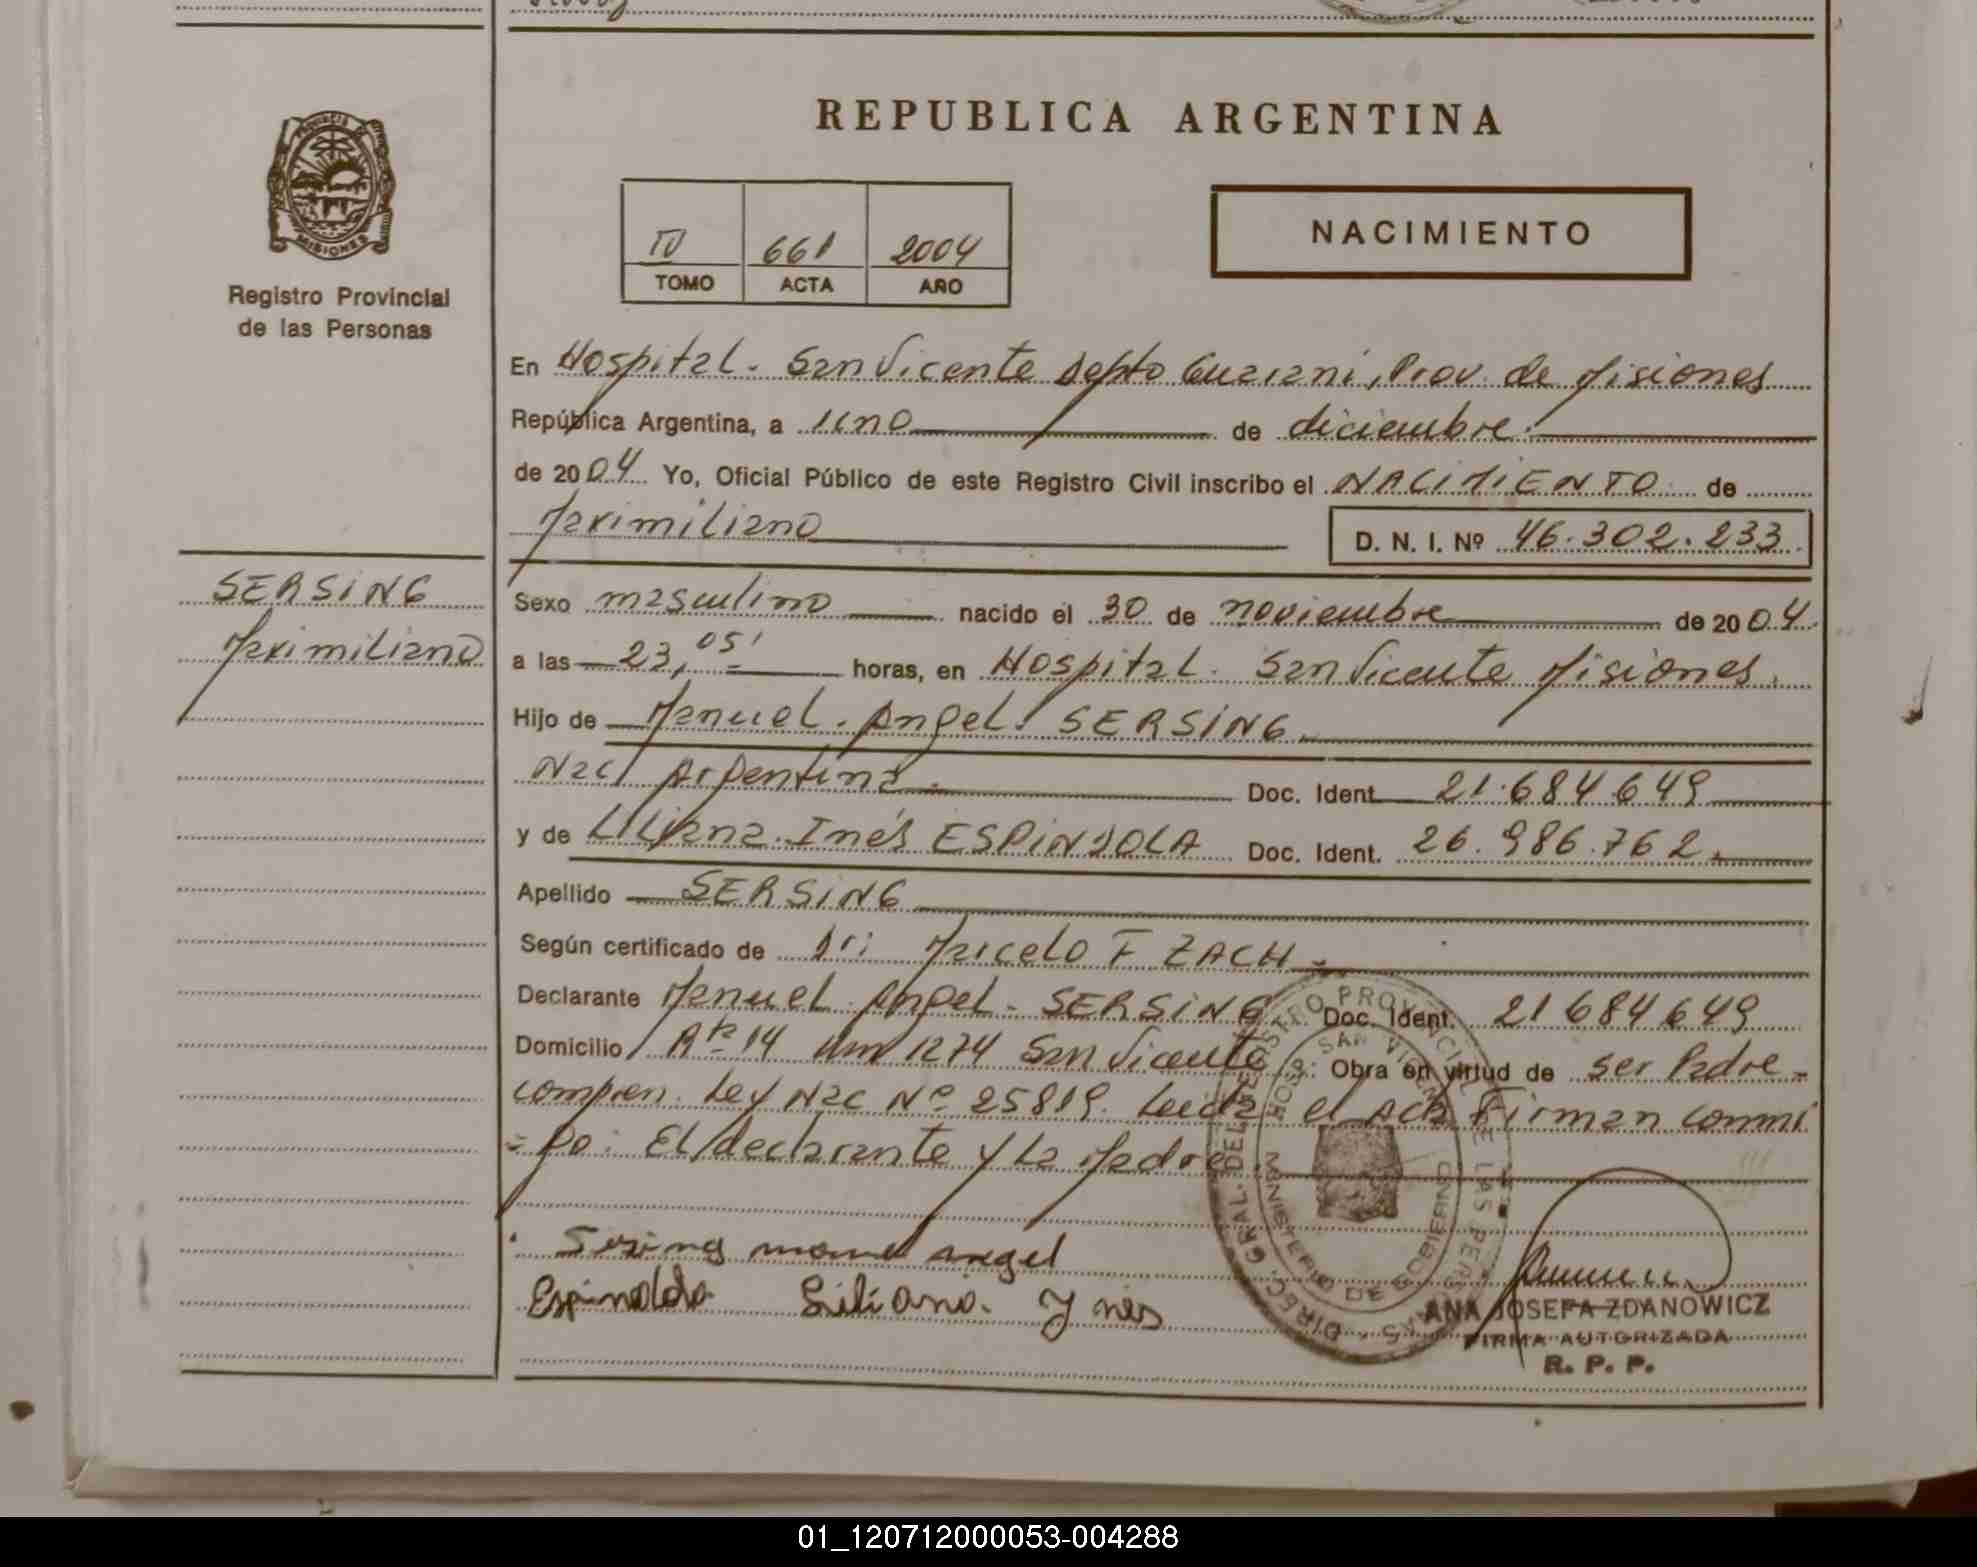 REPUBLICA ARGENTINA
PROVINCIA DE
MISIONES
Registro Provincial
de las Personas
IV 661 2004
TOMO ACTA AÑO
NACIMIENTO
En Hospital. San Vicente Depto Guarani, Prov. de Misiones
República Argentina, a uno de diciembre
de 2004 Yo, Oficial Público de este Registro Civil inscribo el NACIMIENTO de
Maximiliano D. N. I. Nº 46.302.233
SERSING
Maximiliano
Sexo masculino nacido el 30 de noviembre de 2004
a las 23,05' horas, en Hospital. San Vicente Misiones.
Hijo de Manuel. Angel. SERSING
Nac Argentina. Doc. Ident 21.684.649
y de Liliana. Inés ESPINDOLA Doc. Ident. 26.986.762.
Apellido SERSING
Según certificado de Dr: Marcelo F ZACH
Declarante Manuel Angel. SERSING Doc. Ident. 21684649
Domicilio Rta 14 Km 1274 San Vicente Obra en virtud de ser Padre
compren. Ley Nac Nº 25819. Leida el Acta Firman conmi
=go: El declarante y La Madre
Sersing manuel angel
Espindola Liliana. Ynes
DIREC. GRAL. DEL REGISTRO PROVINCIAL DE LAS PERSONAS
HOSP. SAN VICENTE
MINISTERIO DE GOBIERNO
ANA JOSEFA ZDANOWICZ
FIRMA AUTORIZADA
R. P. P.
01_120712000053-004288